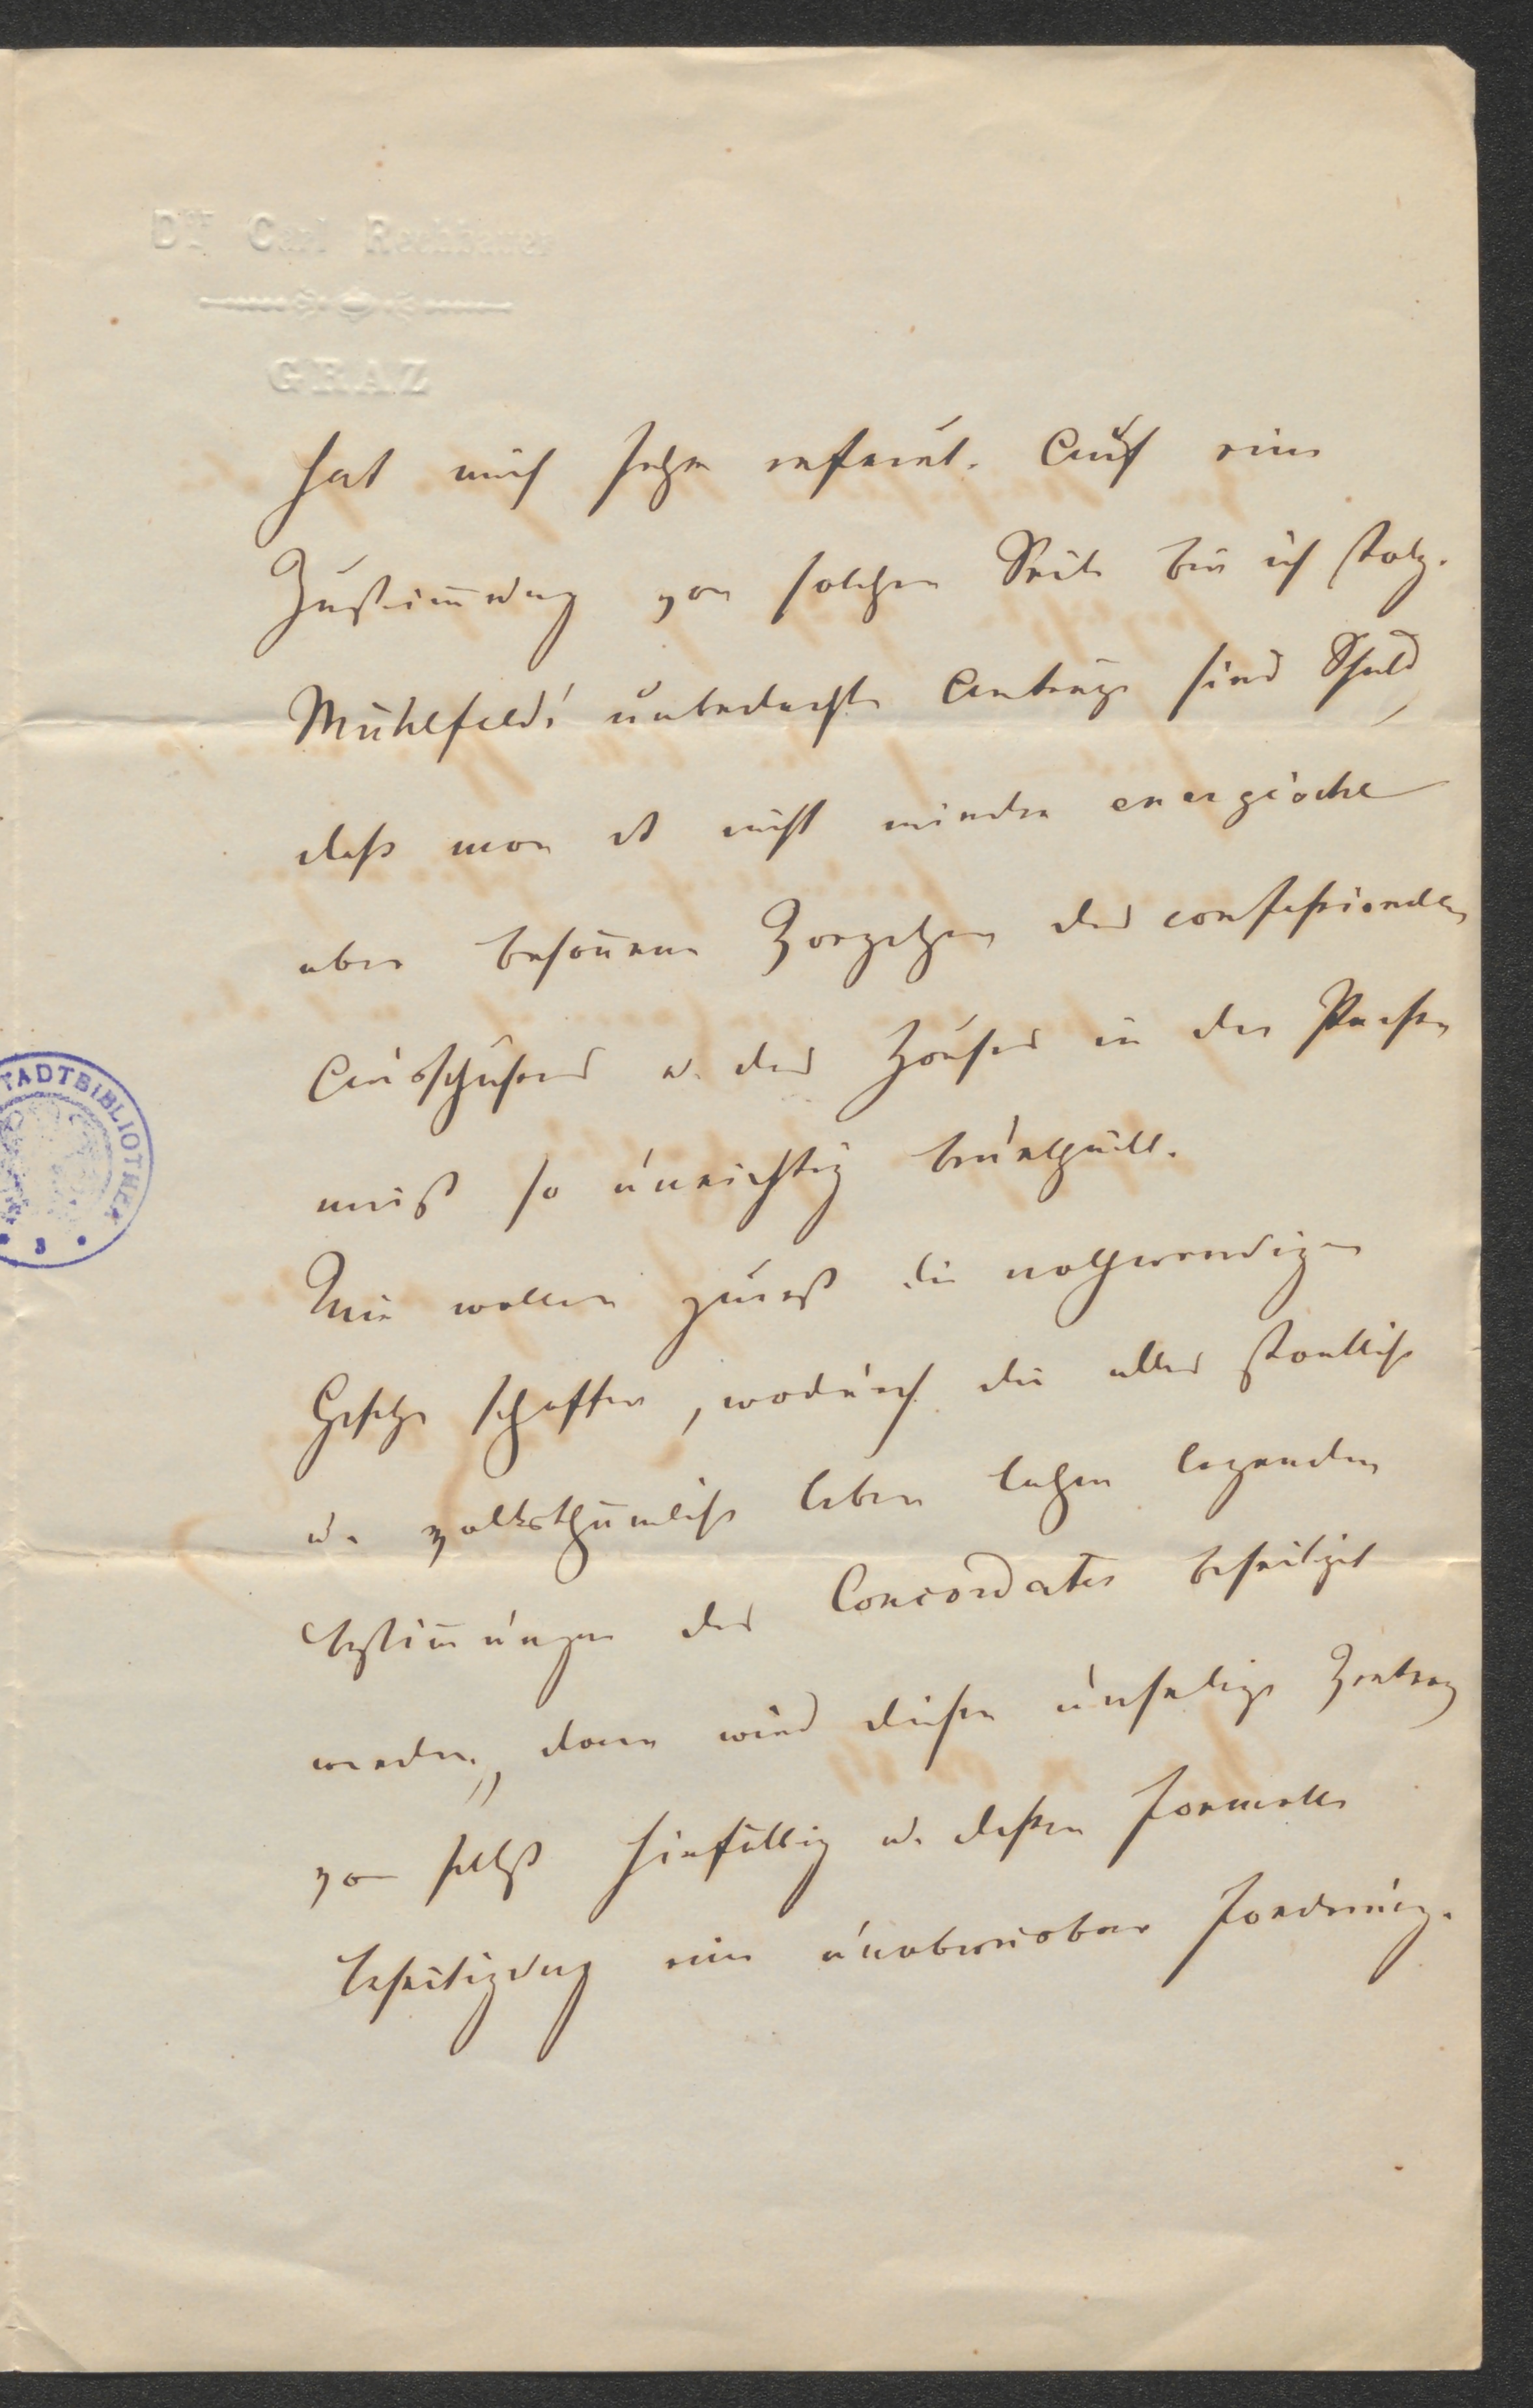 Dr. Carl Rechbauer
GRAZ
hat mich sehr erfreut. Auf eine
Zustimmung von solcher Seite bin ich stolz.
Mühlfeld's unbedachte Anträge sind Schuld,
daß man das nicht minder energische
aber besonnene Vorgehen des confessionellen
Ausschußes u. des Hauses in der Presse
meist so unrichtig beurtheilt.
Wir wollen zuerst die nothwendigen
Gesetze schaffen, wodurch die alles staatliche
u. volksthümliche Leben lahm legenden
Bestimmungen des Concordates beseitiget
werden, dann wird dieser unselige Vertrag
von selbst hinfällig u. dessen formelle
Beseitigung eine unabweisbare Forderung.
STADTBIBLIOTHEK